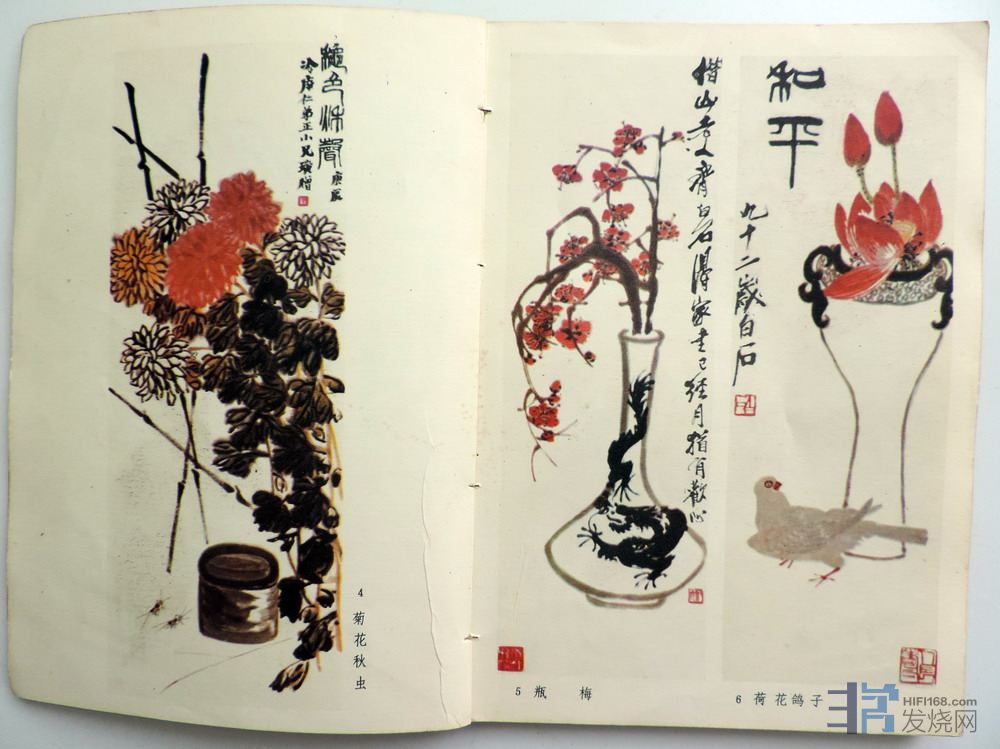 秋色秋声
庚辰
冷庵仁弟正小兄璜赠
4 菊花秋虫
借山老人齐白石得家书已经月犹有欢心
5 瓶 梅
和平
九十二岁白石
6 荷花鸽子
HIFI168.com
发烧网